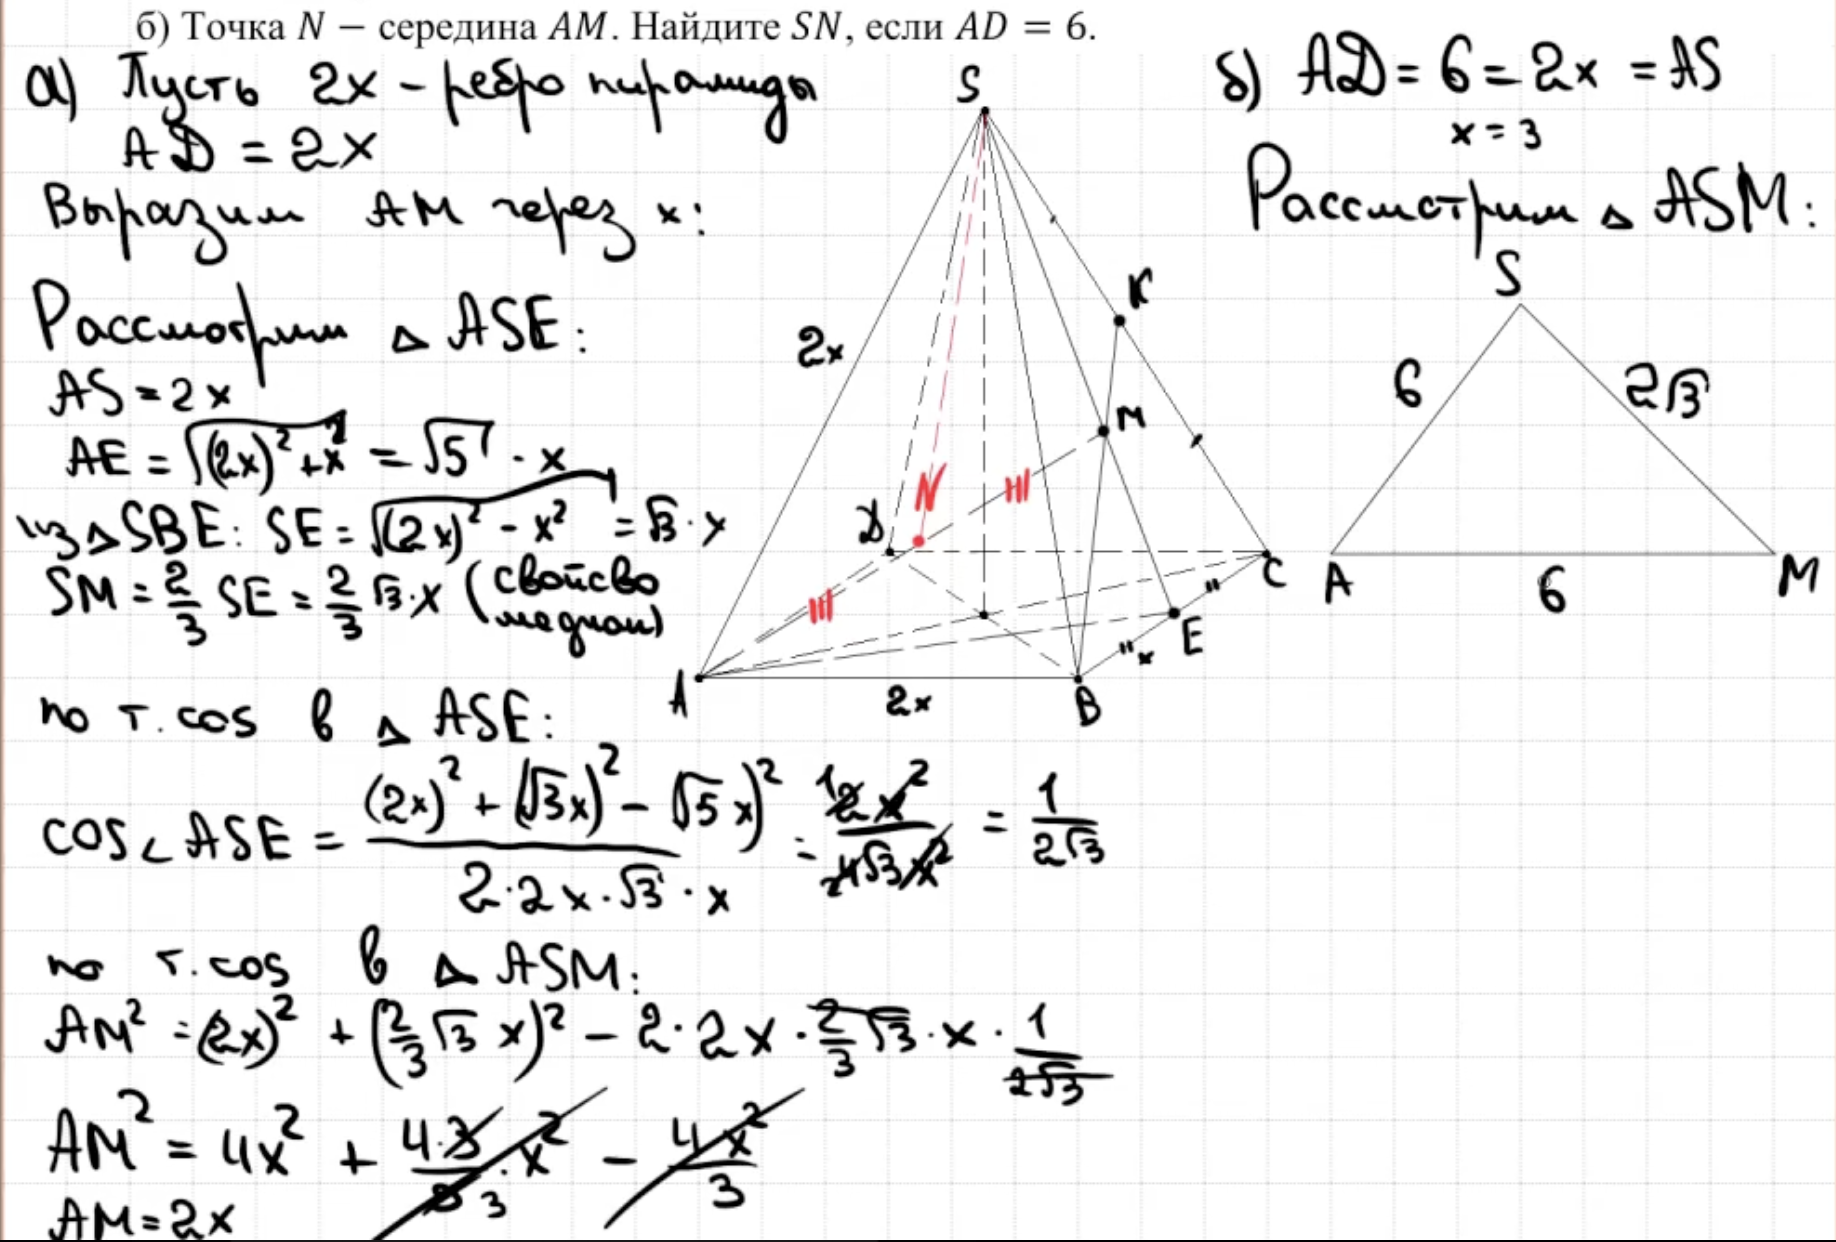 б) Точка N – середина AM. Найдите SN, если AD = 6.
а) Пусть 2x - ребро пирамиды
AD = 2x
Выразим AM через x:
Рассмотрим △ ASE:
AS = 2x
AE = √((2x)² + x²) = √5 · x
из △SBE: SE = √((2x)² - x²) = √3 · x
SM = 2/3 SE = 2/3 √3 · x (свойсво
медиан)
по т. cos в △ ASE:
cos∠ASE = ((2x)² + (√3x)² - (√5x)²) / (2·2x·√3·x) = 2x²/4√3x² = 1/2√3
1
2
по т. cos в △ ASM:
AM² = (2x)² + (2/3 √3 x)² - 2·2x · 2/3 √3 · x · 1/2√3
AM² = 4x² + 4·3/9 · x² - 4x²/3
3
AM = 2x
S
K
2x
M
N
D
C
E
x
A
2x
B
б) AD = 6 = 2x = AS
x = 3
Рассмотрим △ ASM:
S
6
2√3
A
6
M